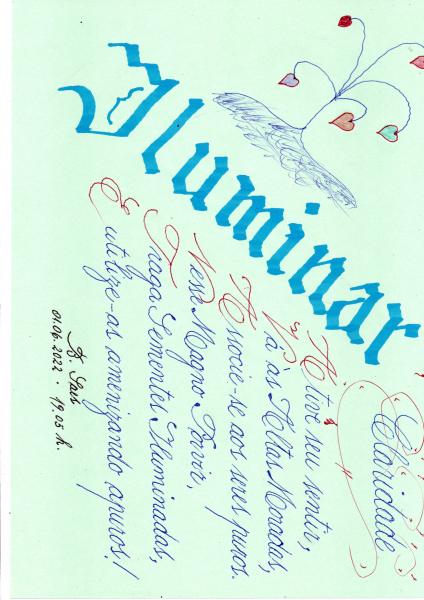 "Claridade"
Iluminar
Ative seu sentir,
Vá às Altas Moradas,
Associe-se aos seres puros.
Nesse Magno Porvir,
Traga Sementes Iluminadas,
E utilize-as amenizando apuros!
01.06.2022 · 19.05 h.